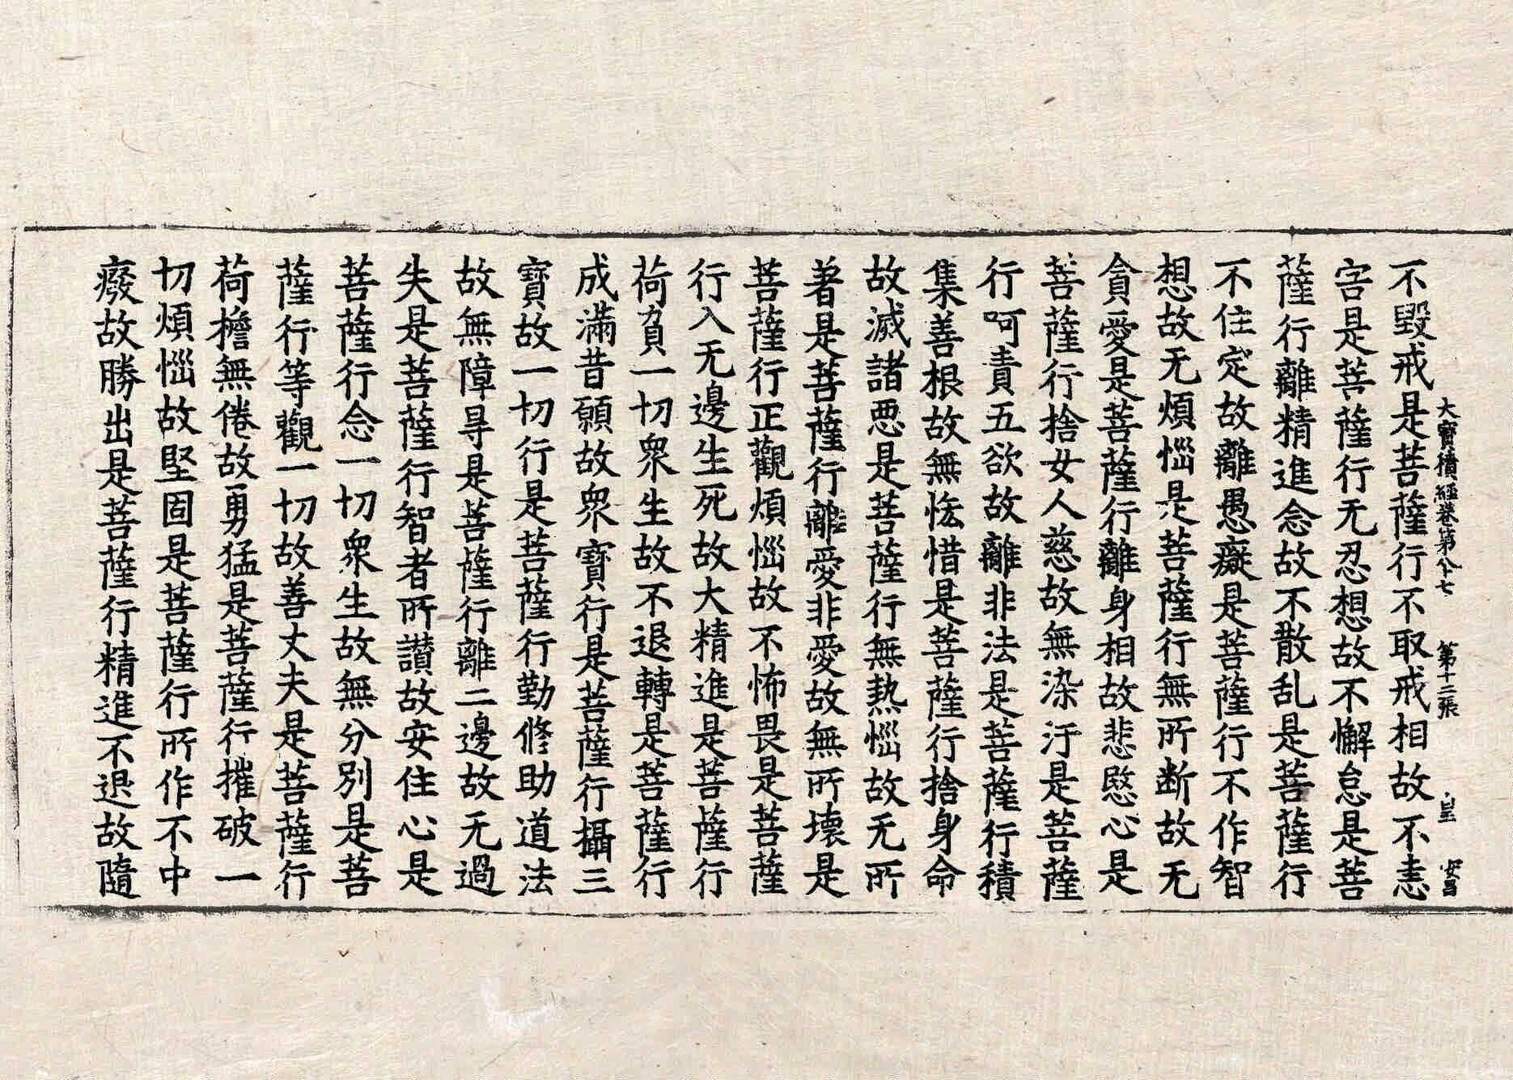 大寶積經卷第八十七 第十二張 皇 安昌
不毀戒是菩薩行不取戒相故不恚
害是菩薩行无忍想故不懈怠是菩
薩行離精進念故不散乱是菩薩行
不住定故離愚癡是菩薩行不作智
想故无煩惱是菩薩行無所断故无
貪愛是菩薩行離身相故悲愍心是
菩薩行捨女人慈故無染汙是菩薩
行呵責五欲故離非法是菩薩行積
集善根故無恡惜是菩薩行捨身命
故滅諸惡是菩薩行無熱惱故无所
著是菩薩行離愛非愛故無所壞是
菩薩行正觀煩惱故不怖畏是菩薩
行入无邊生死故大精進是菩薩行
荷負一切衆生故不退轉是菩薩行
成滿昔願故衆寶行是菩薩行攝三
寶故一切行是菩薩行勤修助道法
故無障㝵是菩薩行離二邊故无過
失是菩薩行智者所讃故安住心是
菩薩行念一切衆生故無分別是菩
薩行等觀一切故善丈夫是菩薩行
荷擔無倦故勇猛是菩薩行摧破一
切煩惱故堅固是菩薩行所作不中
癈故勝出是菩薩行精進不退故隨